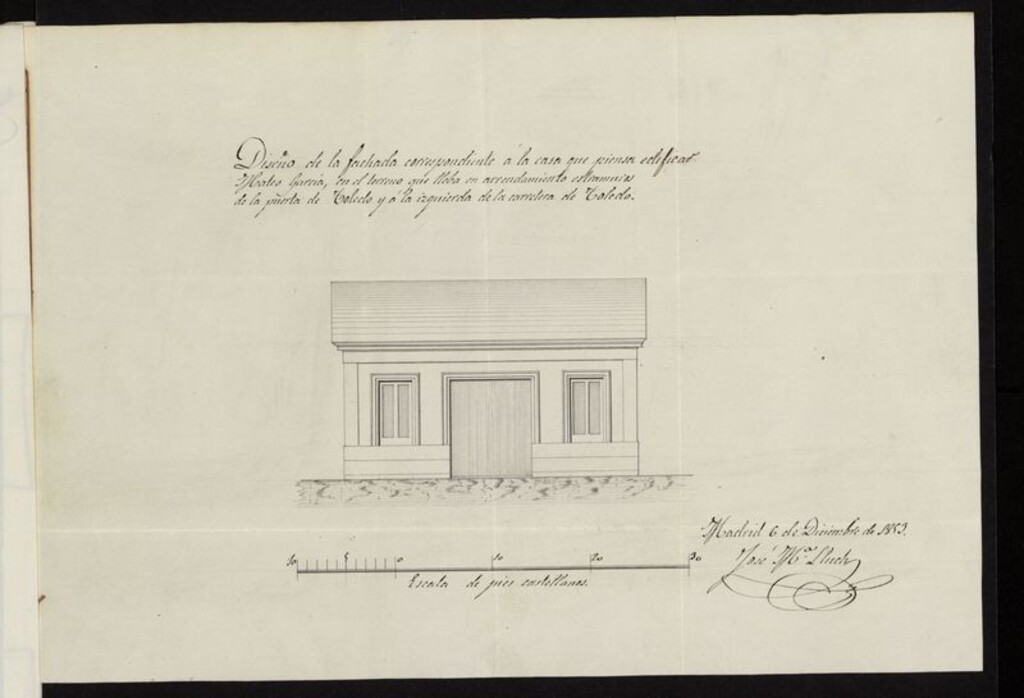 Diseño de la fachada correspondiente á la casa que piensa edificar
Mateo Garcia, en el terreno que lleba en arrendamiento estramuros
de la puerta de Toledo y á la izquierda de la carretera de Toledo.
10 5 0 10 20 30
Escala de pies castellanos.
Madrid 6 de Diciembre de 1853.
José Mª Lluch